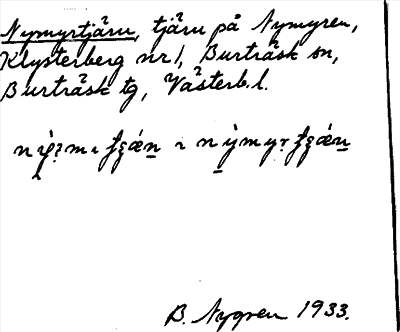 Nymyrtjärn, tjärn på Nymyren,
Klysterberg nr 1, Burträsk sn,
Burträsk tg, Västerb.l.
B. Nygren 1933.